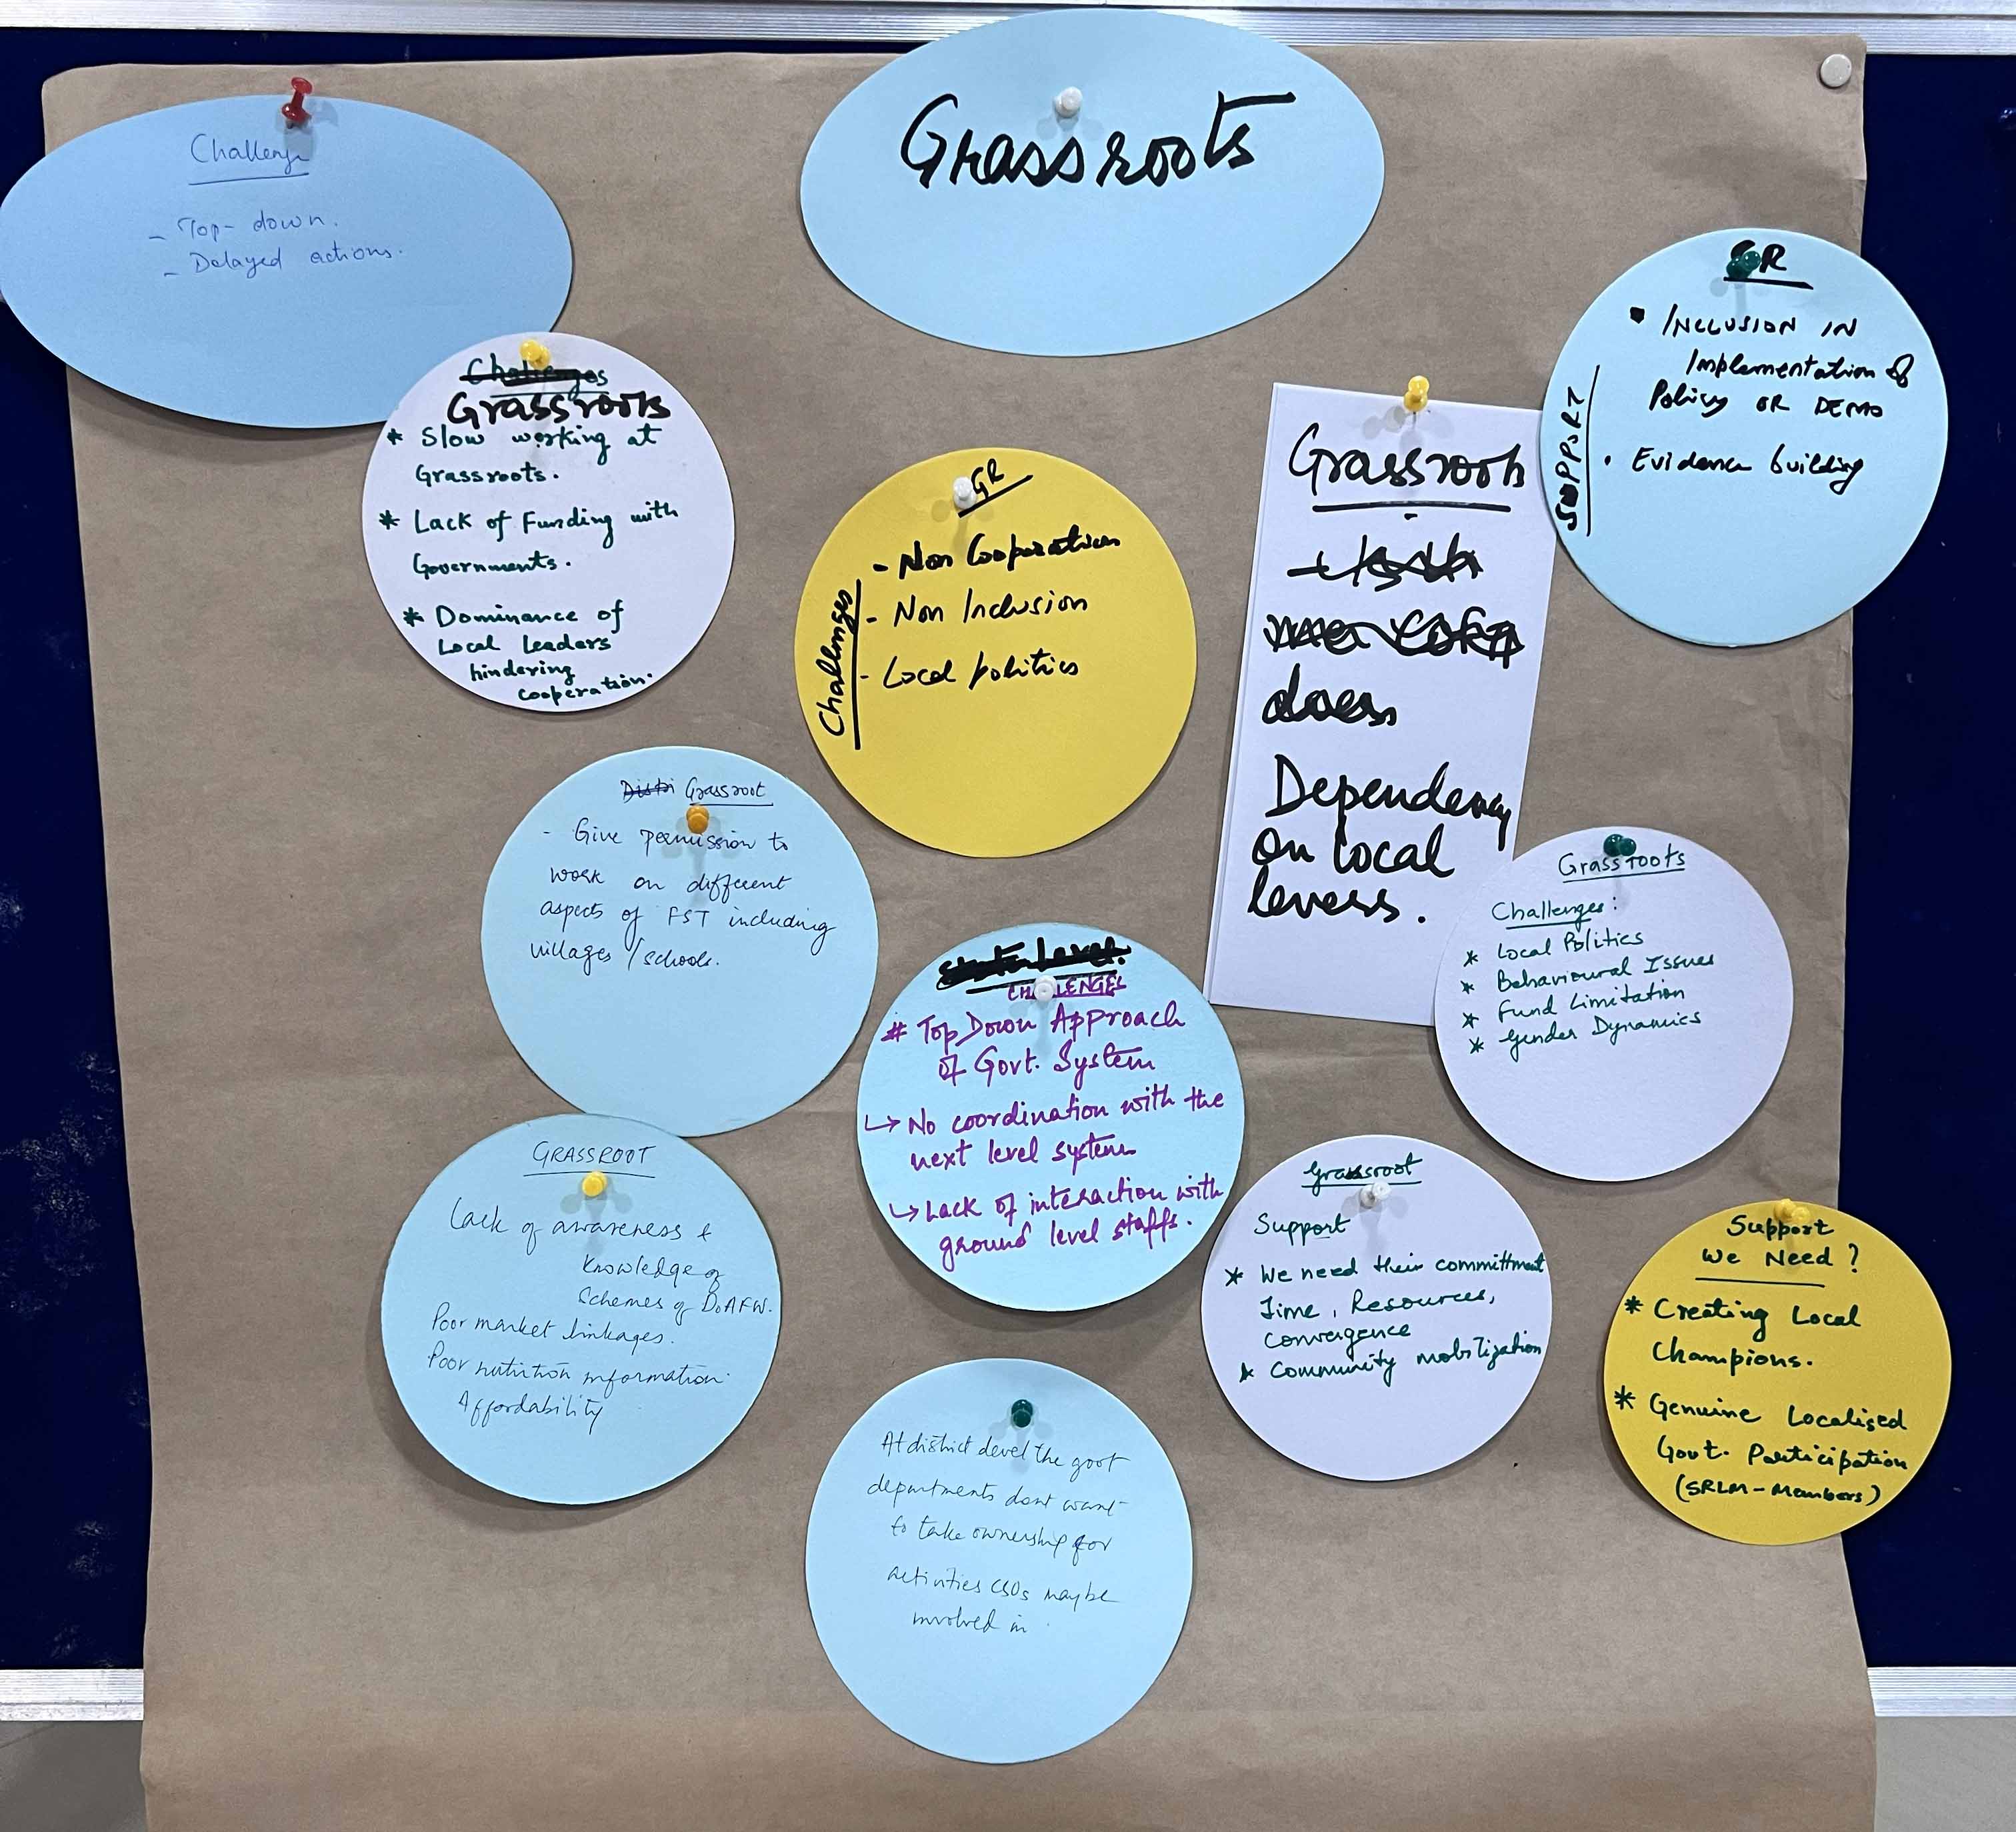 Grassroots
Challenge
- Top-down.
- Delayed actions.
GR
SUPPORT
• INCLUSION IN
Implementation of
Policy OR DEMO
• Evidence building
Challenges
Grassroots
* Slow working at
Grassroots.
* Lack of Funding with
Governments.
* Dominance of
Local Leaders
hindering
cooperation.
GR
Challenges
- Non Cooperation
- Non Inclusion
- Local politics
Grassroots
does
Dependency
on local
levess.
Distri Grassroot
- Give permission to
work on different
aspects of FST including
villages / schools.
Grassroots
Challenges:
* Local Politics
* Behavioural Issues
* Fund Limitation
* Gender Dynamics
State Level
CHALLENGES
# Top Down Approach
of Govt. System
↳ No coordination with the
next level system
↳ Lack of interaction with
ground level staffs.
GRASSROOT
Lack of awareness &
Knowledge of
Schemes of DoAFW.
Poor market linkages.
Poor nutrition information.
Affordability
Grassroot
Support
* We need their committment
Time, Resources,
Convergence
* Community mobilization
Support
We Need?
* Creating Local
Champions.
* Genuine Localised
Govt. Participation
(SRLM-Members)
At district level the govt
departments dont want
to take ownership for
activities CSOs maybe
involved in